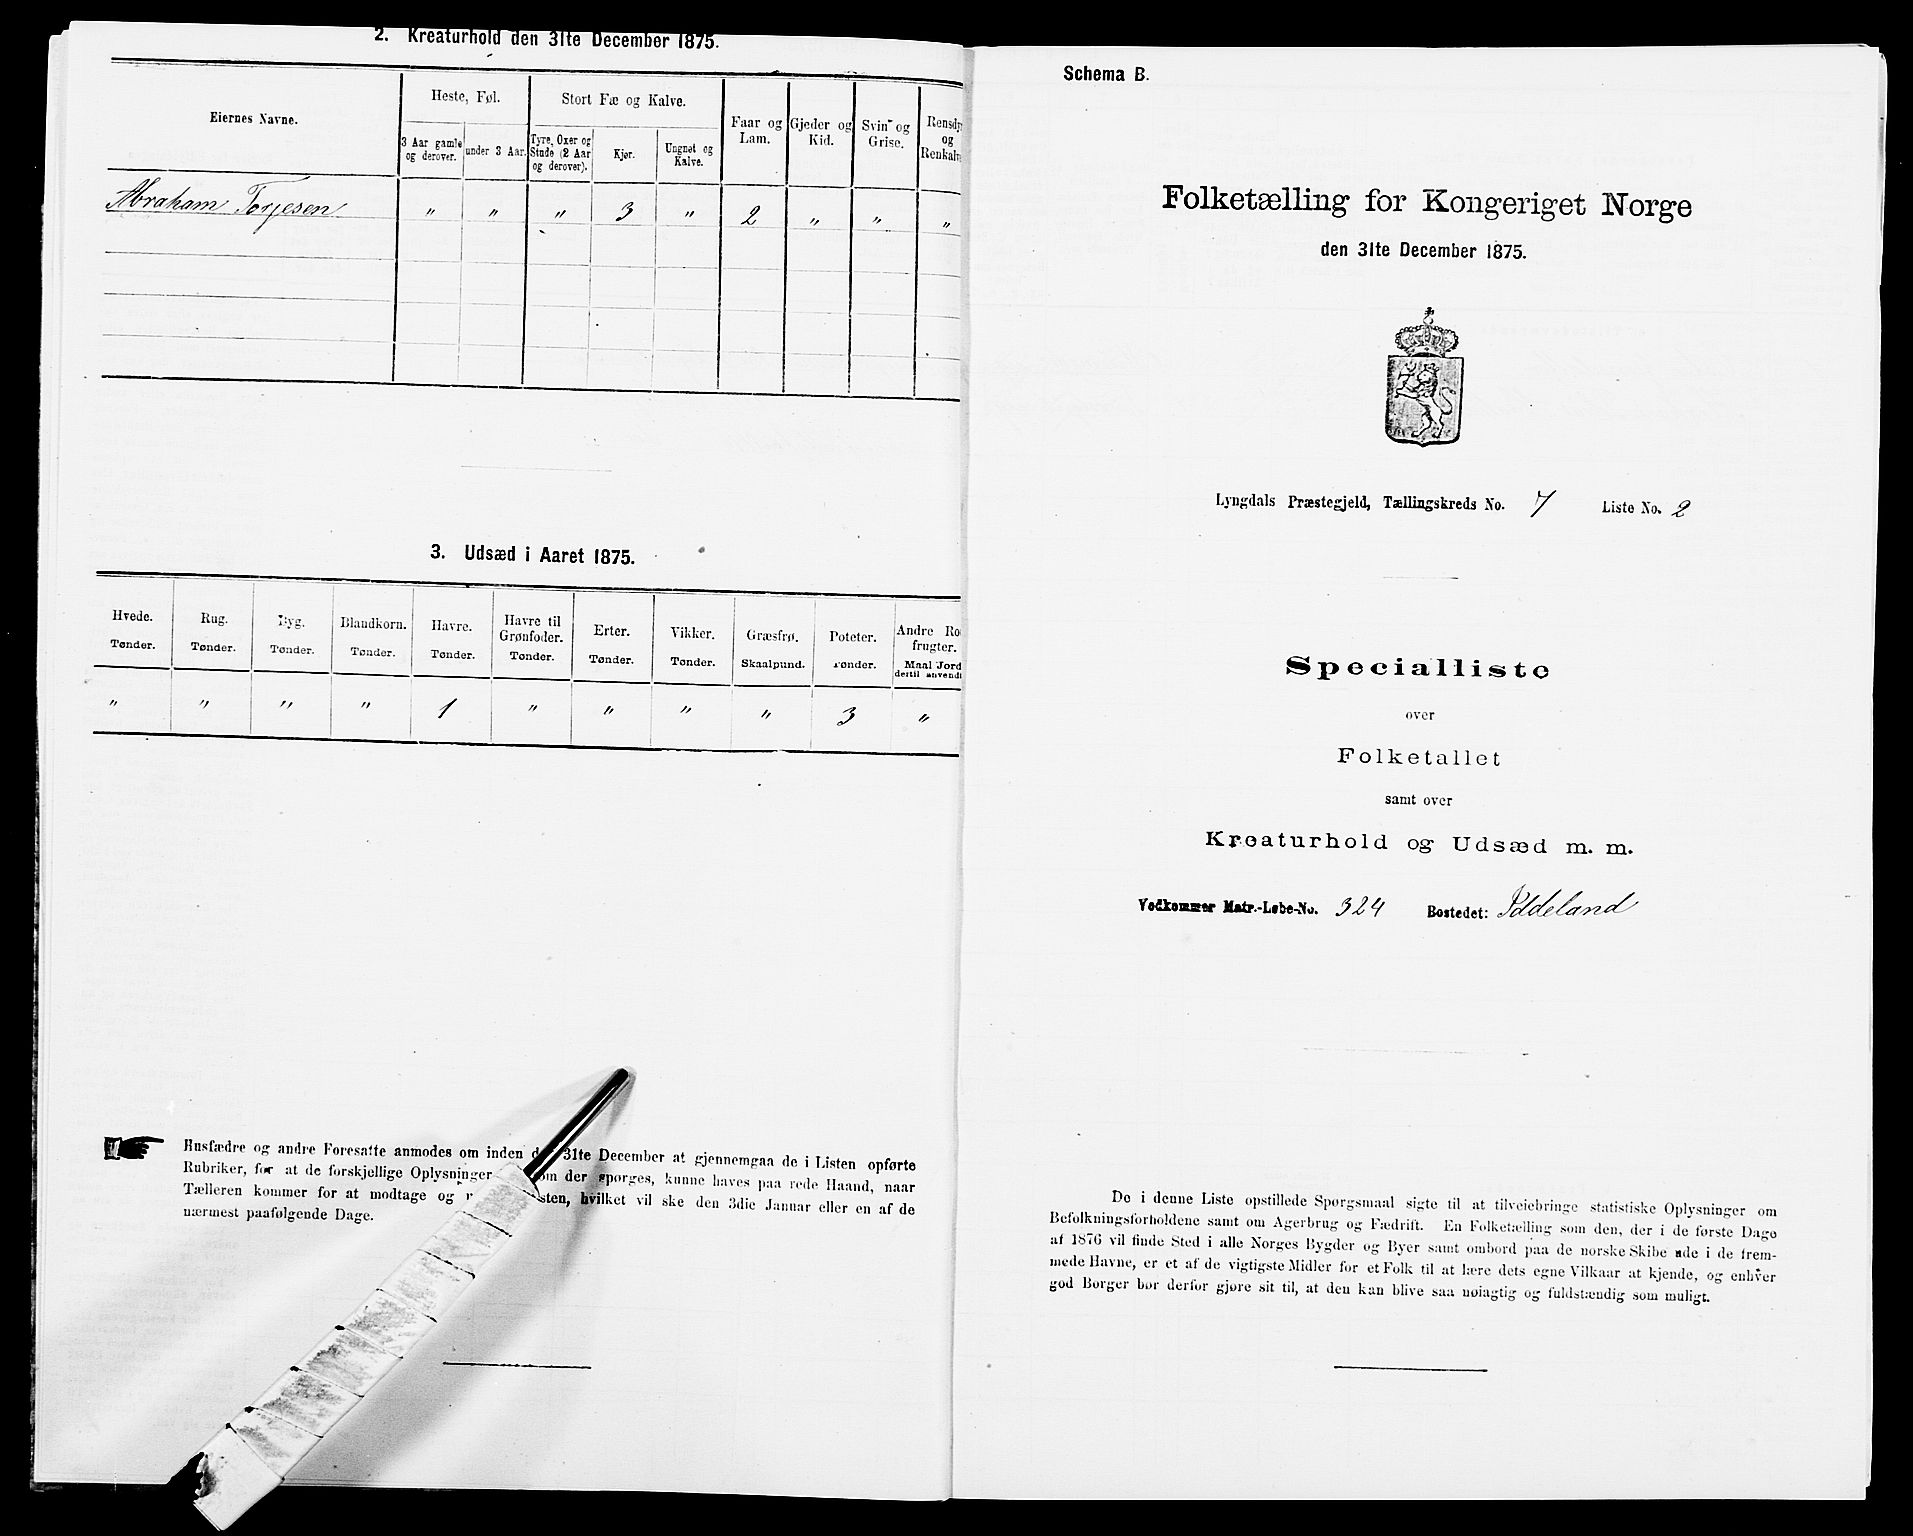 2. Kreaturhold den 31te December 1875.
Eiernes Navne.
Heste, Føl.
Stort Fæ og Kalve.
Faar og Lam.
Gjeder og Kid.
Svin og Grise.
og
3 Aar gamle og derover.
under 3 Aar.
Tyre, Oxer og Stude (2 Aar og derover).
Kjør.
Ungnøt og Kalve.
Abraham Torjesen " " " 3 " 2 " " "
3. Udsæd i Aaret 1875.
Hvede. Rug. Byg. Blandkorn. Havre. Havre til Grønfoder. Erter. Vikker. Græsfrø. Poteter. Andre
frugter.
Tønder. Tønder. Tønder. Tønder. Tønder. Tønder. Tønder. Tønder. Skaalpund. Tønder. Maal Jord
dertil anvendt
" " " " 1 " " " " 3 "
Husfædre og andre Foresatte anmodes om inden 31te December at gjennemgaa de i Listen opførte
Rubriker, for at de forskjellige Oplysninger om der spørges, kunne haves paa rede Haand, naar
Tælleren kommer for at modtage og sten, hvilket vil ske den 3die Januar eller en af de
nærmest paafølgende Dage.
Schema B.
Folketælling for Kongeriget Norge
den 31te December 1875.
Lyngdals Præstegjeld, Tællingskreds No. 7 Liste No. 2
Specialliste
over
Folketallet
samt over
Kreaturhold og Udsæd m. m.
Vedkommer Matr.-Løbe-No. 324 Bostedet: Iddeland
De i denne Liste opstillede Spørgsmaal sigte til at tilveiebringe statistiske Oplysninger om
Befolkningsforholdene samt om Agerbrug og Fædrift. En Folketælling som den, der i de første Dage
af 1876 vil finde Sted i alle Norges Bygder og Byer samt ombord paa de norske Skibe ude i de frem-
mede Havne, er et af de vigtigste Midler for et Folk til at lære dets egne Vilkaar at kjende, og enhver
god Borger bør derfor gjøre sit til, at den kan blive saa nøiagtig og fuldstændig som muligt.